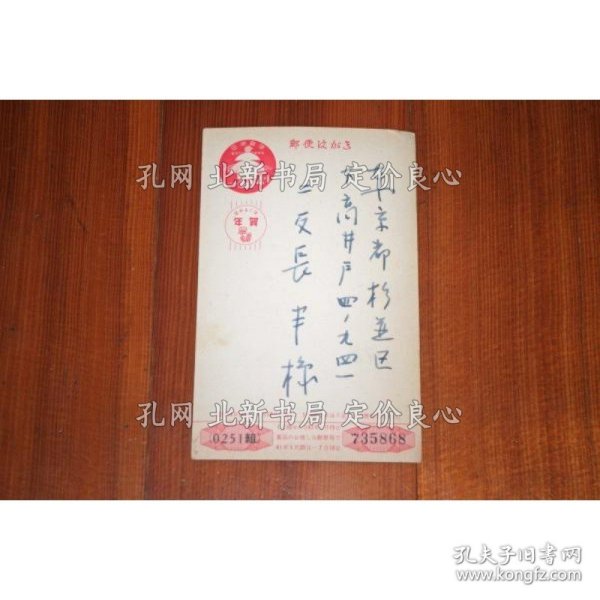 郵便はがき
東京都杉並区
下高井戸四ノ九四一
二反長半様
年賀
孔网 北新书局 定价良心
孔网 北新书局 定价良心
0251組
735868
孔夫子旧书网
www.kongfz.com